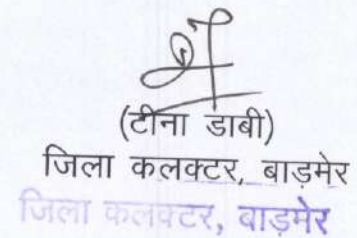 (टीना डाबी)
जिला कलक्टर, बाड़मेर
जिला कलक्टर, बाड़मेर